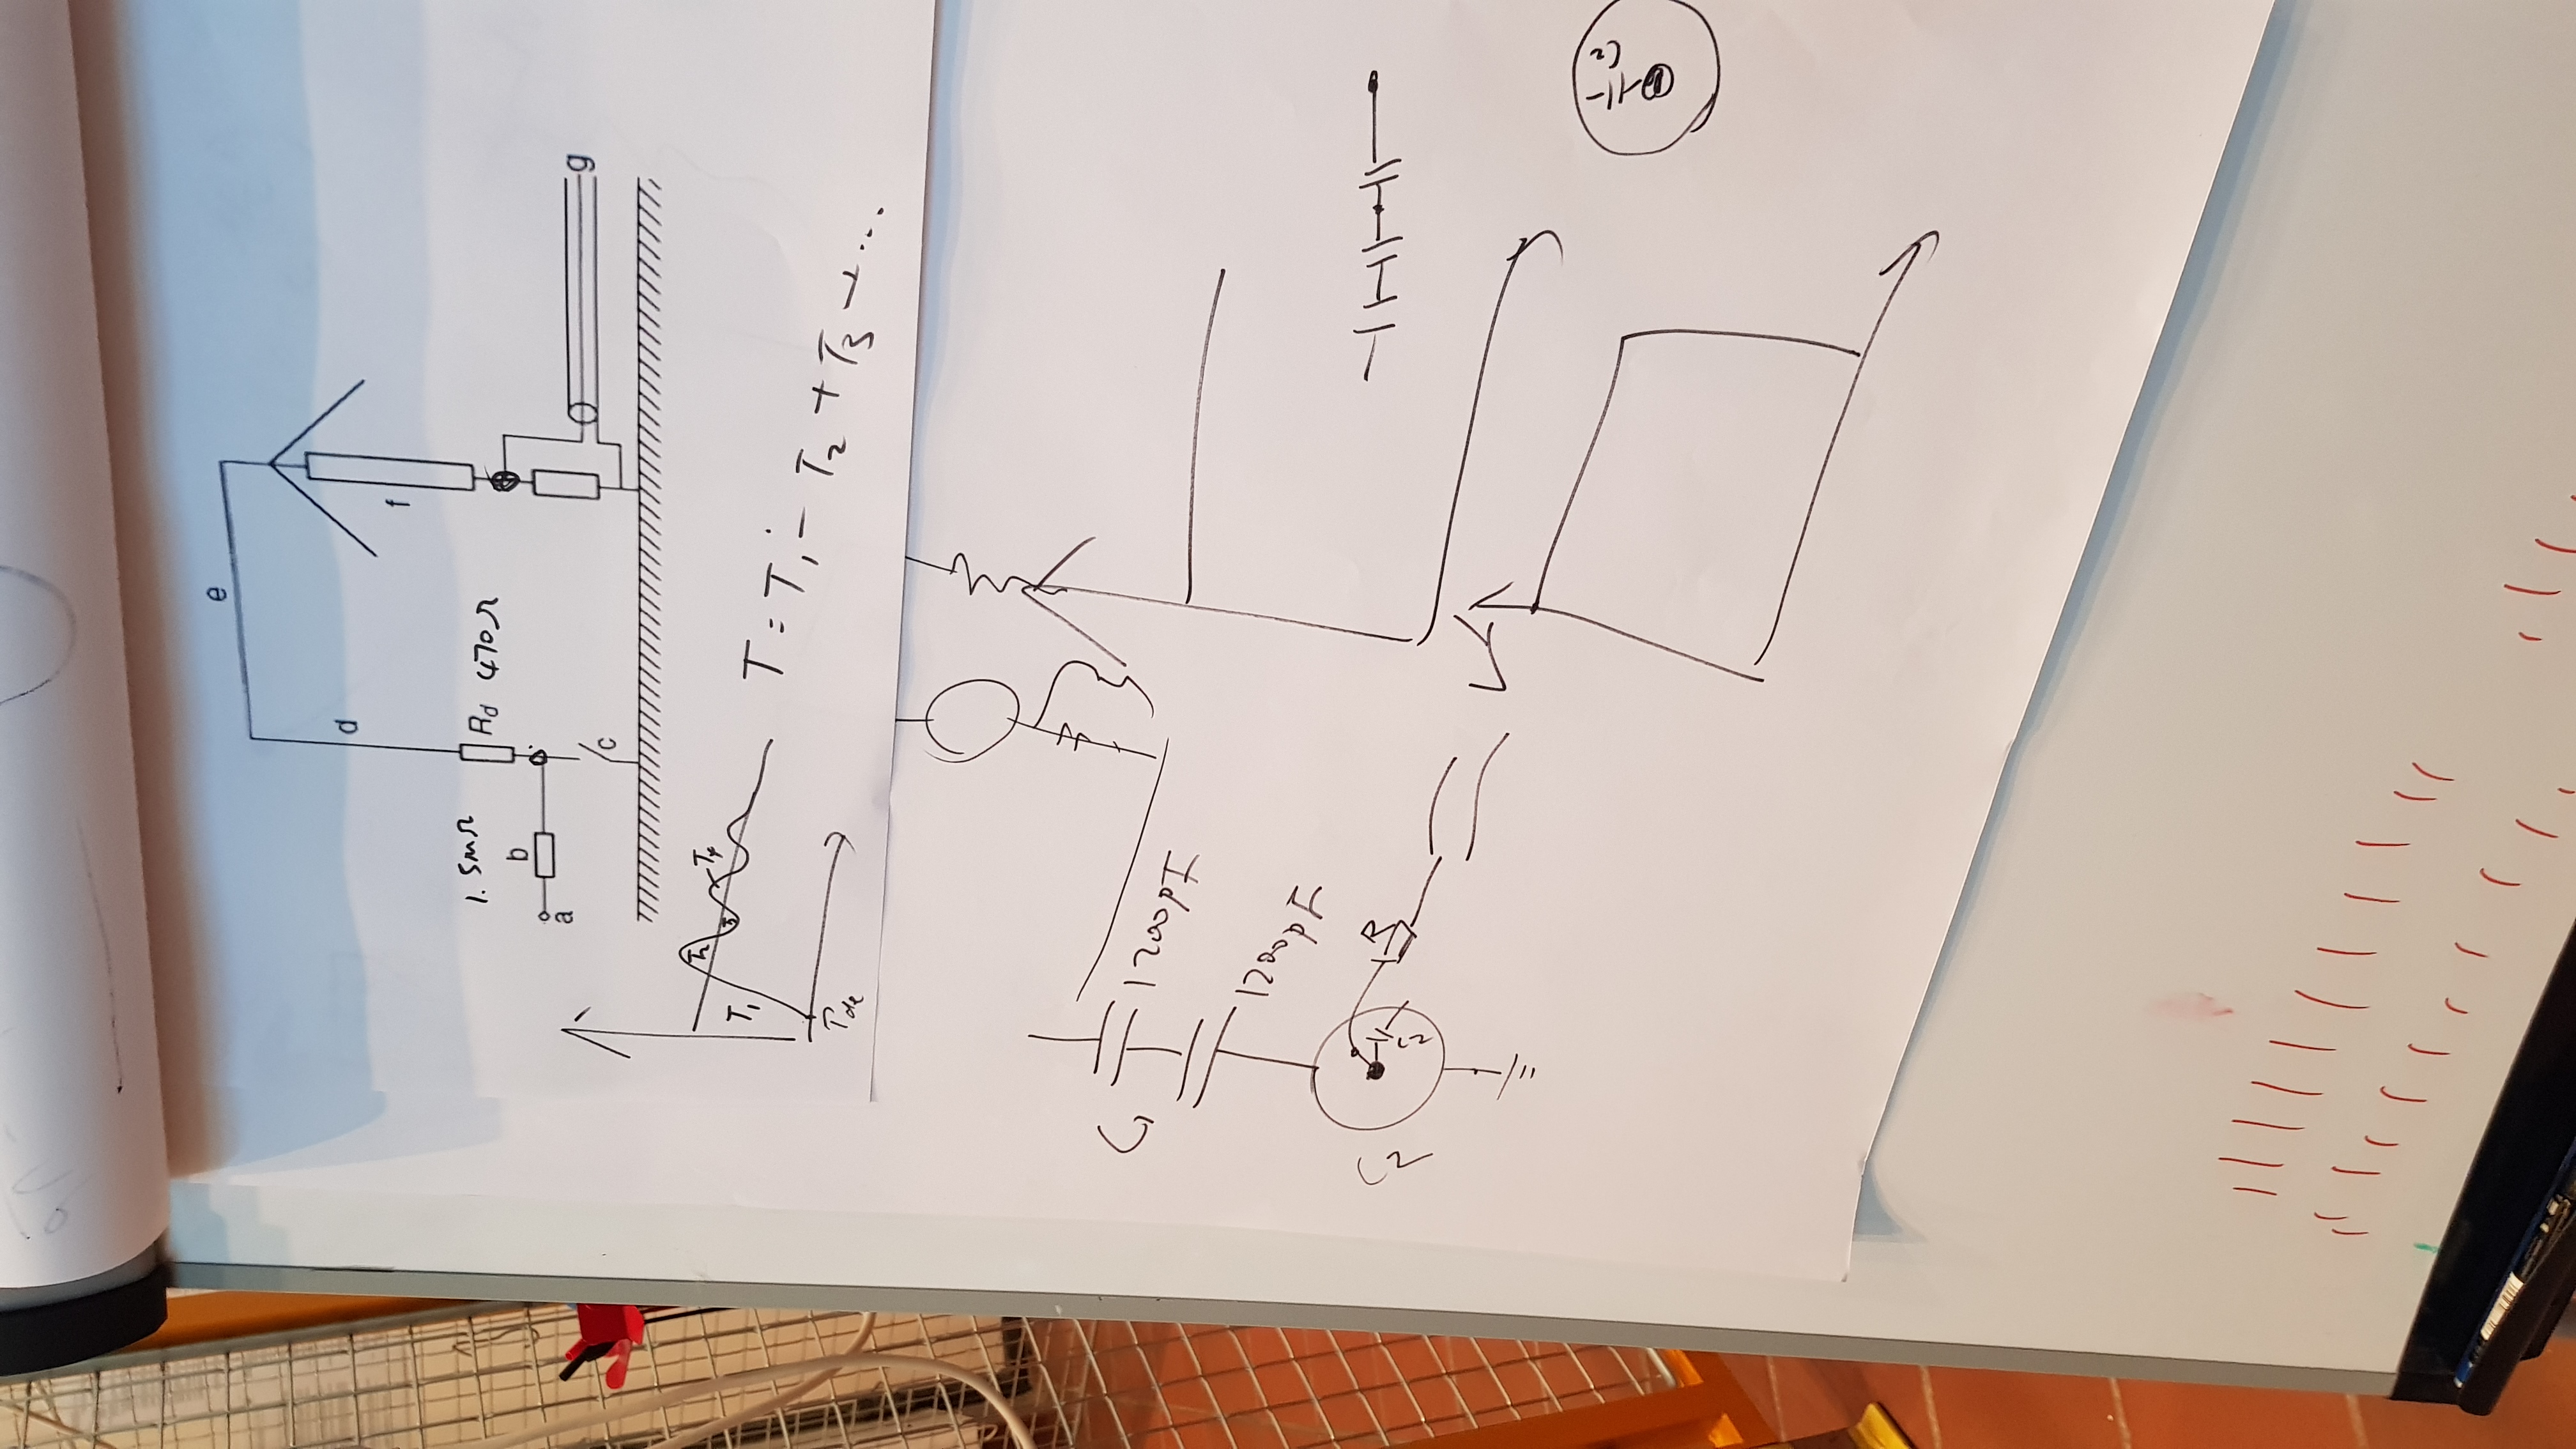 e
d
f
1.5MΩ
Rd 470Ω
b
a
c
g
T1
T2
T3
T4
T = T1 - T2 + T3 - ...
C1
1200pF
1200pF
C2
C2
R
C2